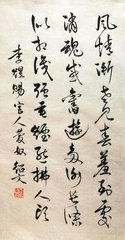 風情漸老見春羞到處
消魂感舊遊多謝長條
似相識強垂煙態拂人頭
李煜賜宮人慶奴